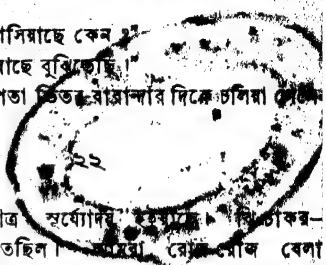 াসিয়াছে কেন ?"
য়াছে বুঝিতেছি।"
পতা ভিতর বারান্দার দিকে চলিয়া গেলে
২২
ত্র সূর্য্যোদয় হইয়াছে। ঝি চাকর—
তেছিল। রোজ রোজ বেলা